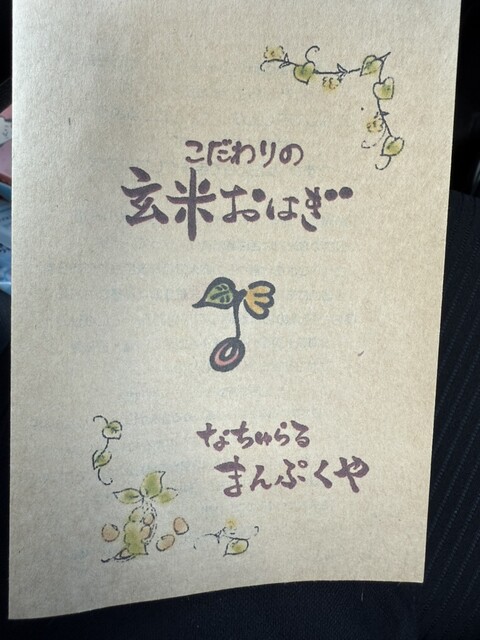 こだわりの
玄米おはぎ
なちゅらる
まんぷくや